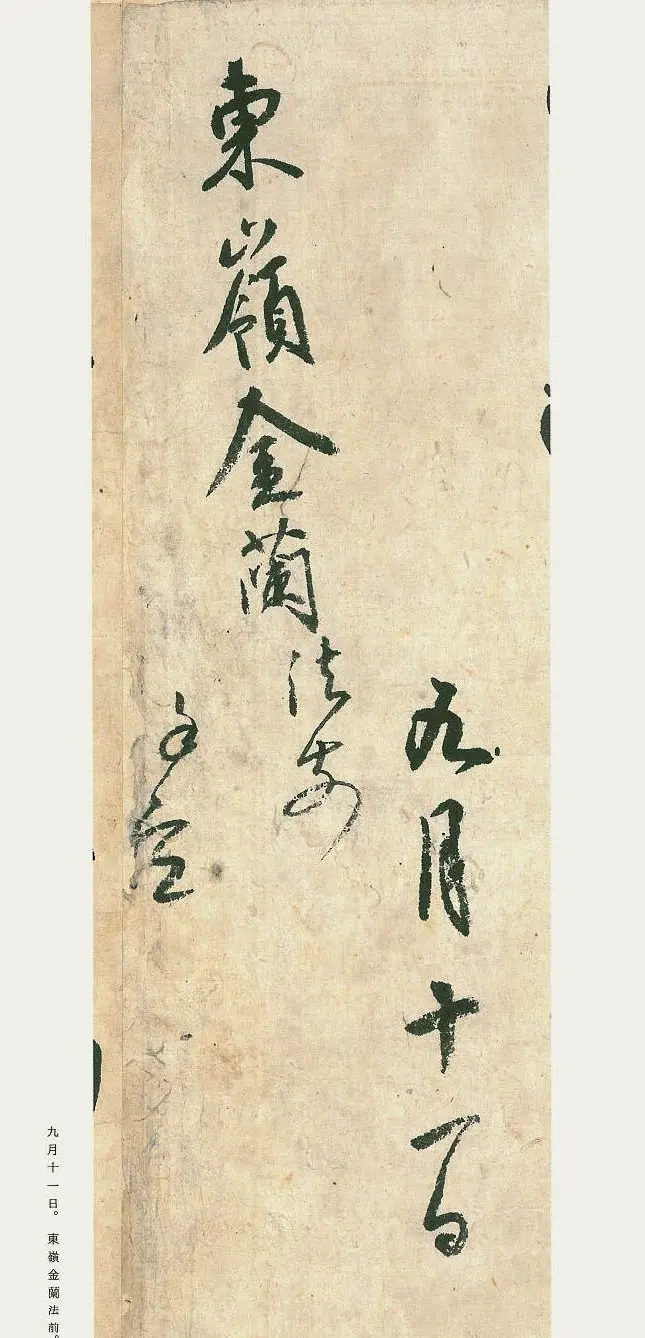 九月十一日
東嶺金蘭法前
謹空
九月十一日。東嶺金蘭法前。